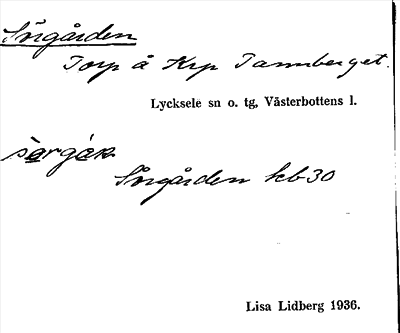 Sörgården
Torp å Krp Tannberget.
Lycksele sn o. tg, Västerbottens l.
Sörgården kb30
Lisa Lidberg 1936.